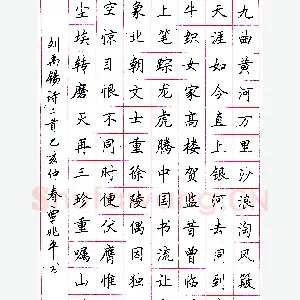 九曲黄河万里沙浪淘风簸
天涯如今直上银河去同到
牛织女家高楼贺监昔曾临
上笔踪龙虎腾中国书流让
象北朝文士重徐陵偶因独
空惊目恨不同时便伏膺惟
尘埃转磨灭再三珍重嘱山
刘禹锡诗二首己亥仲春曹兆平书